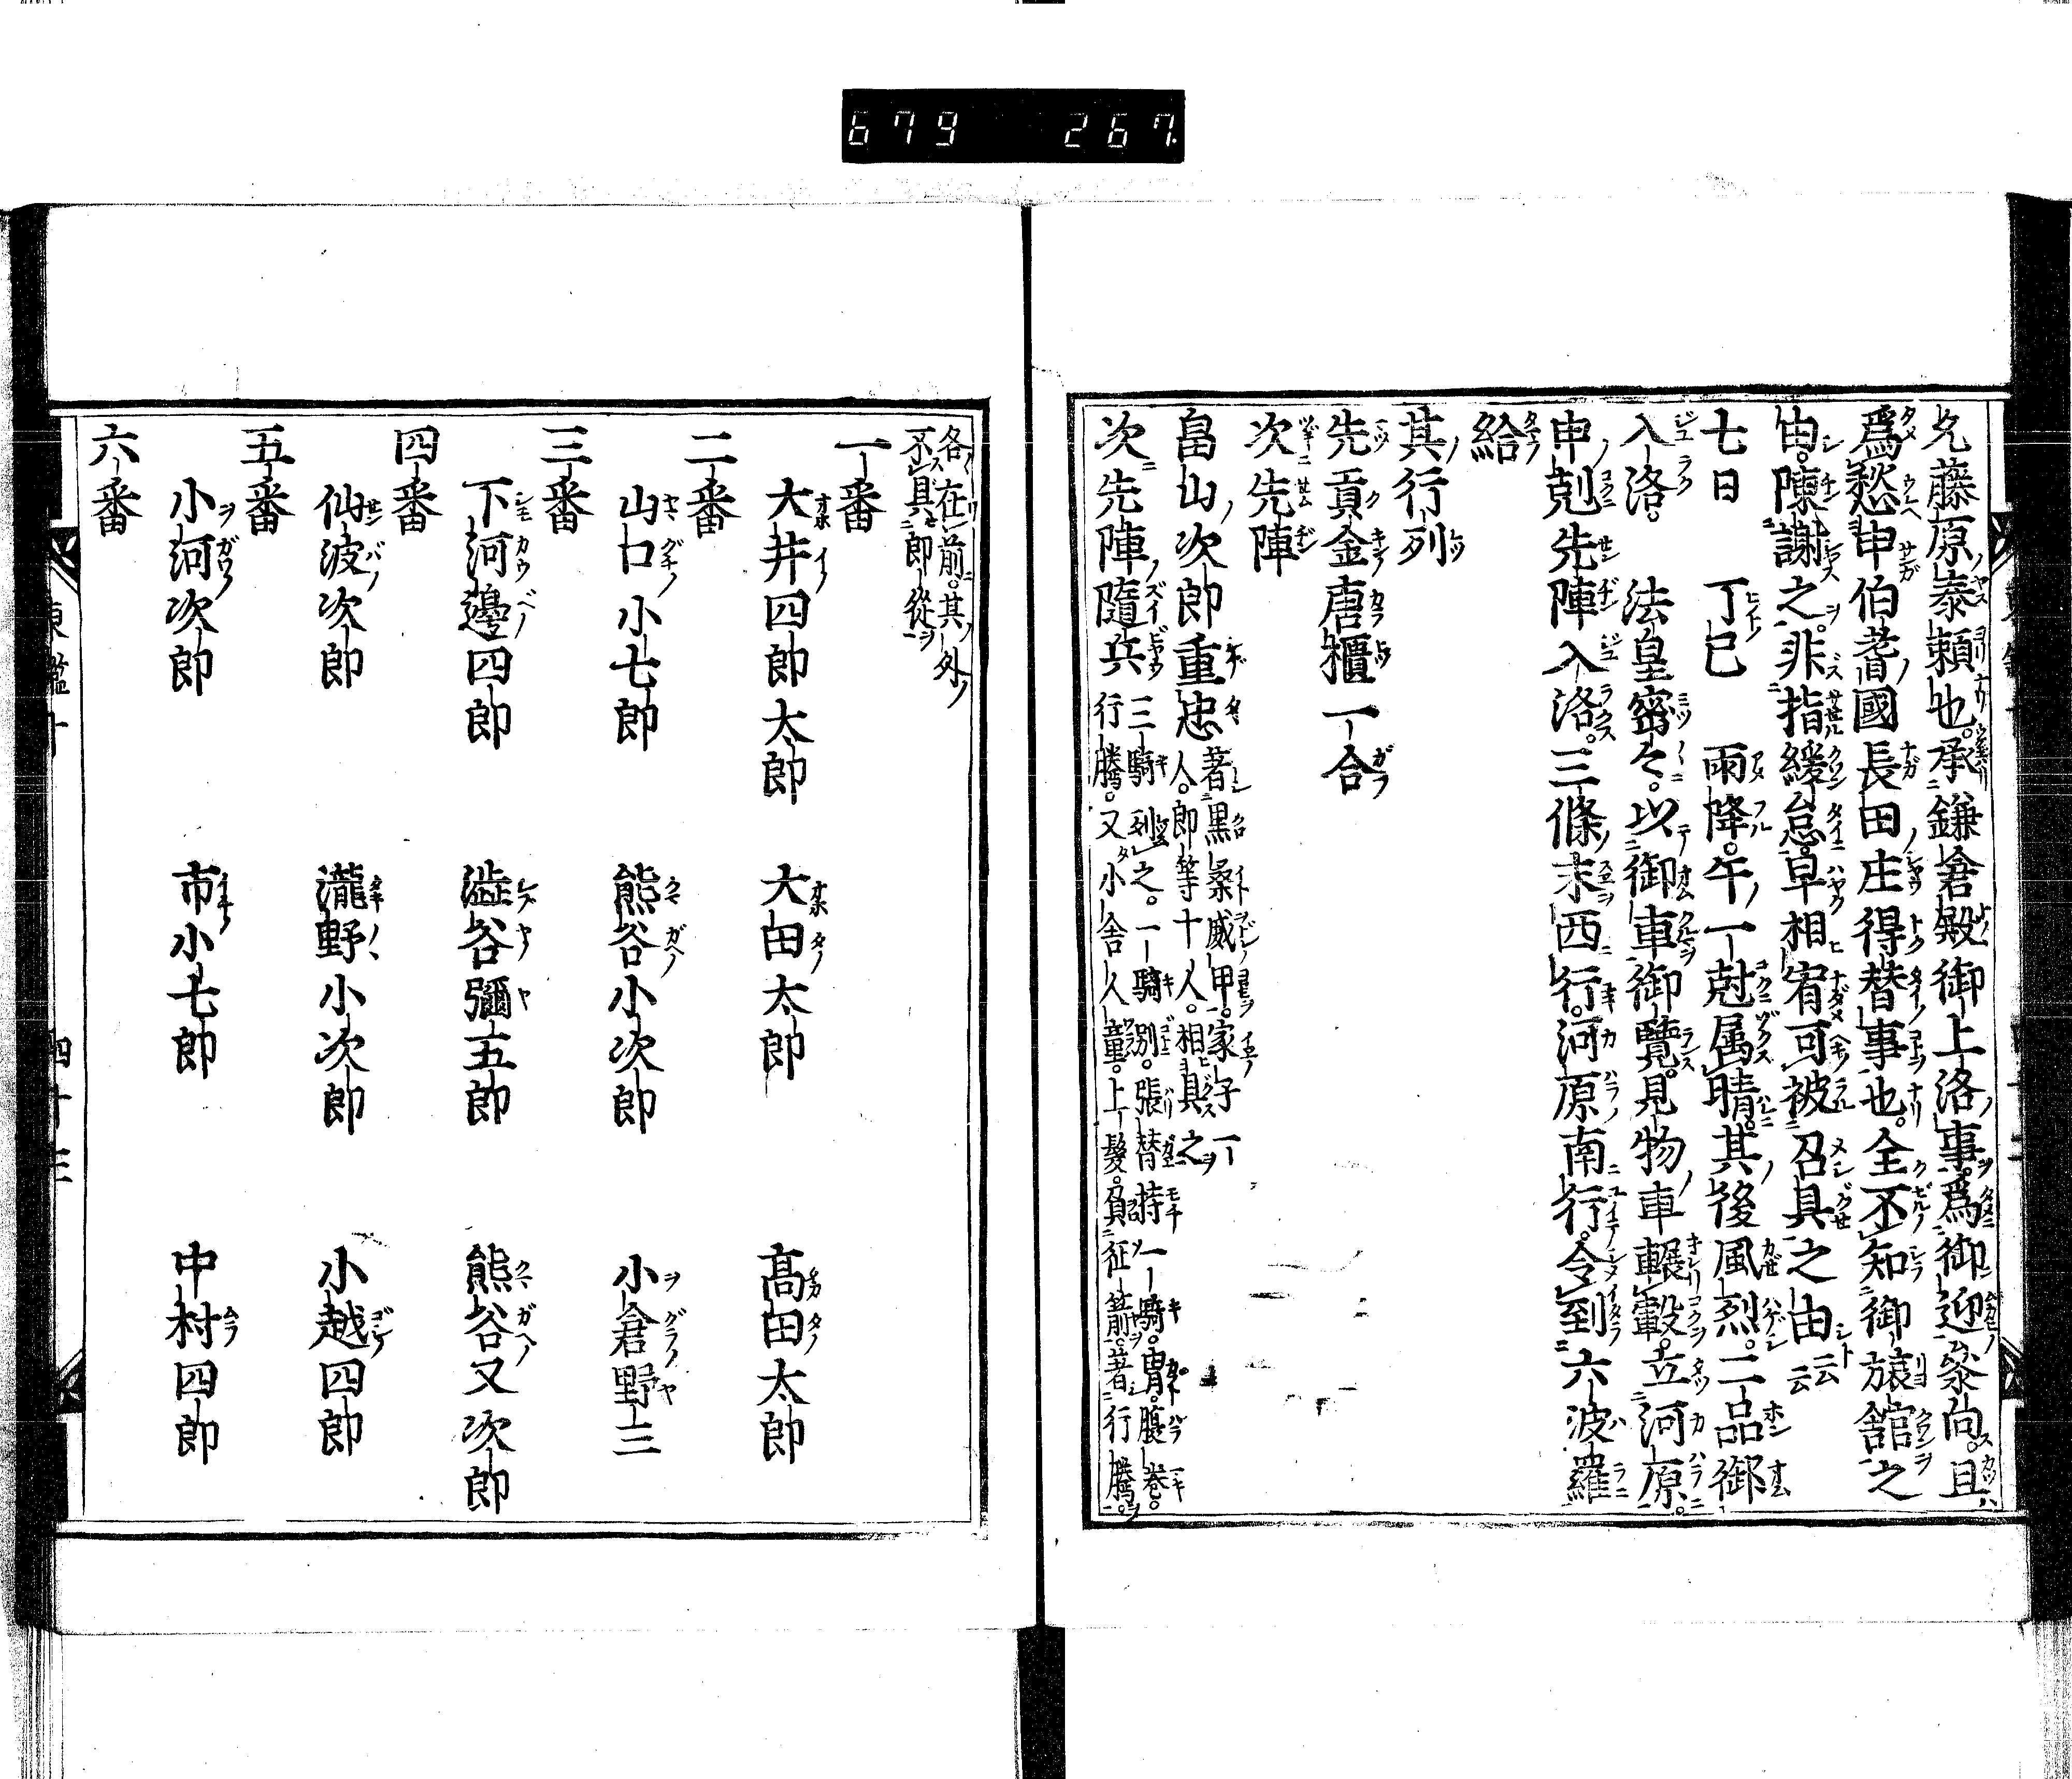 679 267
允藤原泰頼也。承鎌倉殿御上洛事。爲御迎參向。且
爲愁申伯耆國長田庄得替事也。全不知御旅舘之
由。陳謝之。非指緩怠。早相宥可被召具之由云云
七日 丁巳 雨降。午一尅属晴。其後風烈。二品御
入洛。 法皇密々。以御車御覽。見物車輾轂。立河原。
申剋先陣入洛。三條末西行。河原南行。令到六波羅
給
其行列
先貢金唐櫃一合
次先陣
畠山次郎重忠 著黒糸威甲。家子一人。郎等十人。相具之
次先陣隨兵 三騎列之。一騎別。張替持一騎。冑。腹卷。行騰。又小舍人童。上髮。負征箭。著行騰。
各在前。其外
不具郎從
一番
大井四郎太郎 大田太郎 高田太郎
二番
山口小七郎 熊谷小次郎 小倉野三
三番
下河邊四郎 澁谷彌五郎 熊谷又次郎
四番
仙波次郎 瀧野小次郎 小越四郎
五番
小河次郎 市小七郎 中村四郎
六番
東鑑十 四十三